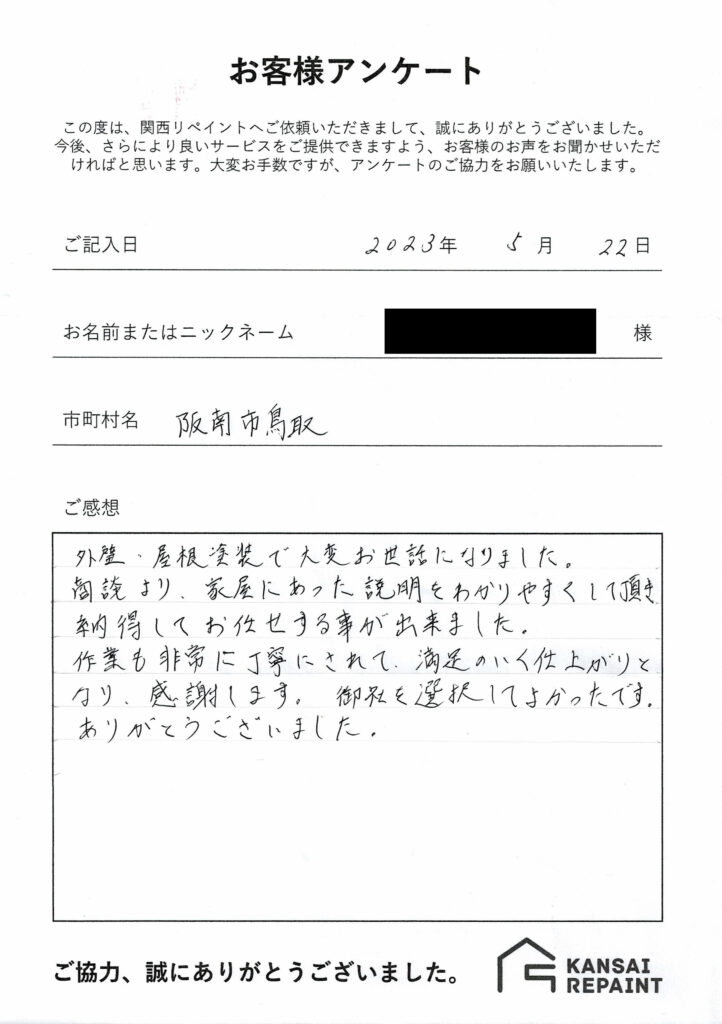 お客様アンケート
この度は、関西リペイントへご依頼いただきまして、誠にありがとうございました。
今後、さらにより良いサービスをご提供できますよう、お客様のお声をお聞かせいただ
ければと思います。大変お手数ですが、アンケートのご協力をお願いいたします。
ご記入日 2023年 5月 22日
お名前またはニックネーム 様
市町村名 阪南市鳥取
ご感想
外壁・屋根塗装で大変お世話になりました。
商談より、家屋にあった説明をわかりやすくして頂き
納得してお任せする事が出来ました。
作業も非常に丁寧にされて、満足のいく仕上がりと
なり、感謝します。 御社を選択してよかったです。
ありがとうございました。
ご協力、誠にありがとうございました。
KANSAI
REPAINT